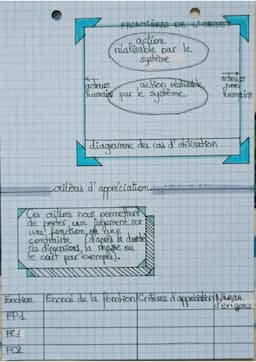 FRONTIÈRES DE L'OBJET
action
réalisable par le
système
acteurs
humains
action réalisable
par le système
acteurs
non
humains
diagramme des cas d'utilisation
critères d'appréciation
Ces critères nous permettent
de porter un jugement sur
une fonction, ou une
contrainte (d'après la durée
les dimensions, la masse ou
le coût par exemple).
Fonction Énoncé de la fonction Critères d'appréciation Niveau
d'exigence
FP1
FC1
FC2